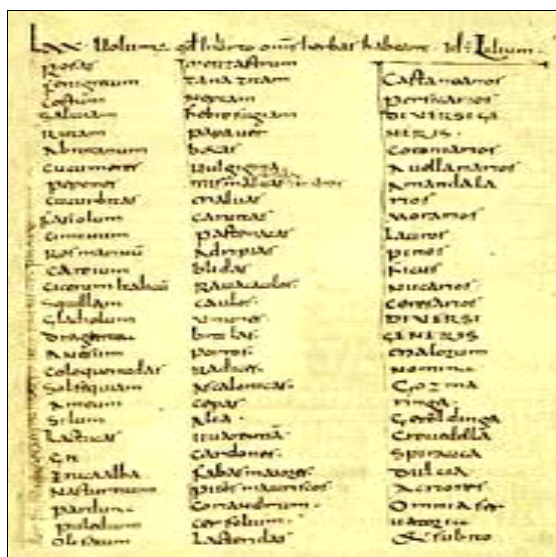 Lxx. Volum; qđ In horto om̄s herbas habeant. Id ÷ Lilium.
Rosas
Fenigrecum
Costum
Salviam
Rutam
Abrotanum
Cucumeres
Pepones
Cucurbitas
Fasiolum
Ciminum
Ros marinū
Careium
Cicerum Italicū
Squillam
Gladiolum
Anesum
Coloquentidas
Solsequiam
Ameum
Silum
Lactucas
Git
Erucaalba
Nasturtium
Parduna
Puledium
Olisatum
Tanazitam
Neptam
Febrefugiam
Papaver
Betas
Vulgigina
Malvas
Carvitas
Pastenacas
Adripias
Blidas
Ravacaulos
Caulos
Uniones
Britlas
Porros
Radices
Ascalonicas
Cepas
Alia
Warentiā
Cardones
Fabas maiores
Pisos mauriscos
Coriandrum
Cerfolium
Lacteridas
Castanearios
Persicarios
DIVERSI GE
NERIS
Cotoniarios
Avellanarios
Amandala
rios
Morarios
Lauros
Pinos
Ficus
Nucarios
Ceresarios
DIVERSI
GENERIS
Malorum
Nomina
Gozma
ringa
Geroldinga
Crevedella
Spirauca
Dulcia
Acriores
Omnia ser
vatoria
& subito